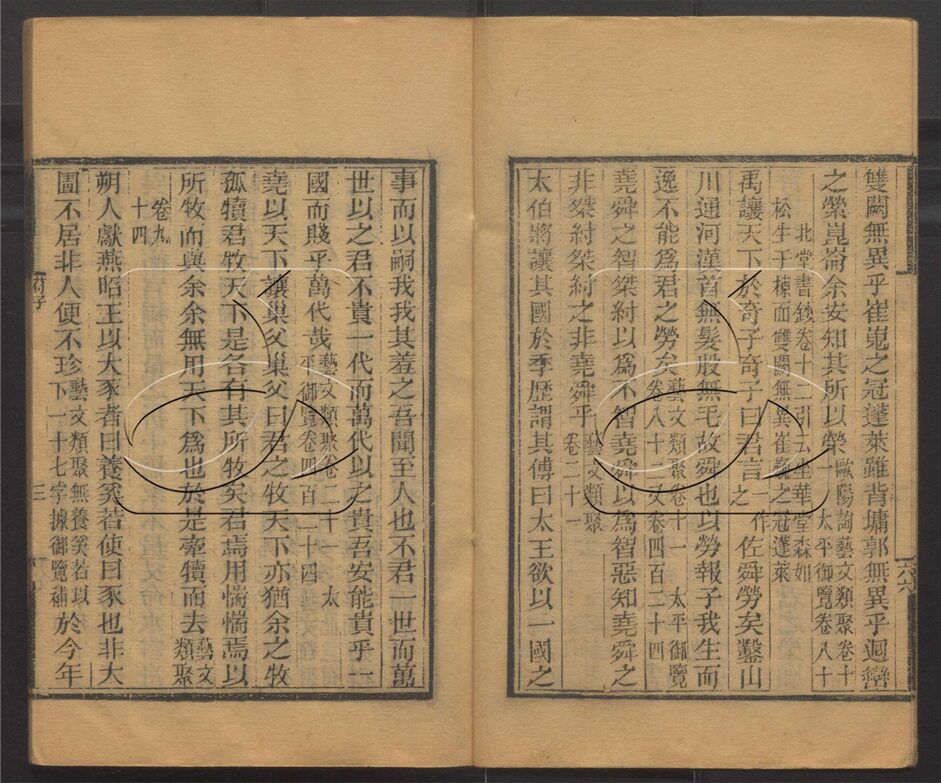 雙闕無異乎崔嵬之冠蓬萊雖背墉郭無異乎迴巒
之縈崑崙余安知其所以榮歐陽詢藝文類聚卷十
一太平御覽卷八十
北堂書鈔卷十二引云坐華堂森如
松生于棟而雙闕無異崔巍之冠蓬萊
禹讓天下於奇子奇子曰君言一作
之佐舜勞矣鑿山
川通河漢首無髮股無毛故舜也以勞報子我生而
逸不能爲君之勞矣藝文類聚卷十一太平御覽
卷八十二又卷四百二十四
堯舜之智桀紂以爲不智堯舜以爲智惡知堯舜之
非桀紂桀紂之非堯舜乎藝文類聚
卷二十一
太伯將讓其國於季歷謂其傅曰太王欲以一國之
事而以嗣我我其羞之吾聞至人也不君一世而萬
世以之君不貴一代而萬代以之貴吾安能貴乎一
國而賤乎萬代哉藝文類聚卷二十一太
平御覽卷四百二十四
堯以天下讓巢父巢父曰君之牧天下亦猶余之牧
孤犢君牧天下是各有其所牧矣君焉用惴惴焉以
所牧而與余余無用天下爲也於是牽犢而去藝文
類聚
卷九
十四
朔人獻燕昭王以大豕者曰養奚若使曰豕也非大
圊不居非人便不珍藝文類聚無養奚若以
下一十七字據御覽補於今年
苻子
三